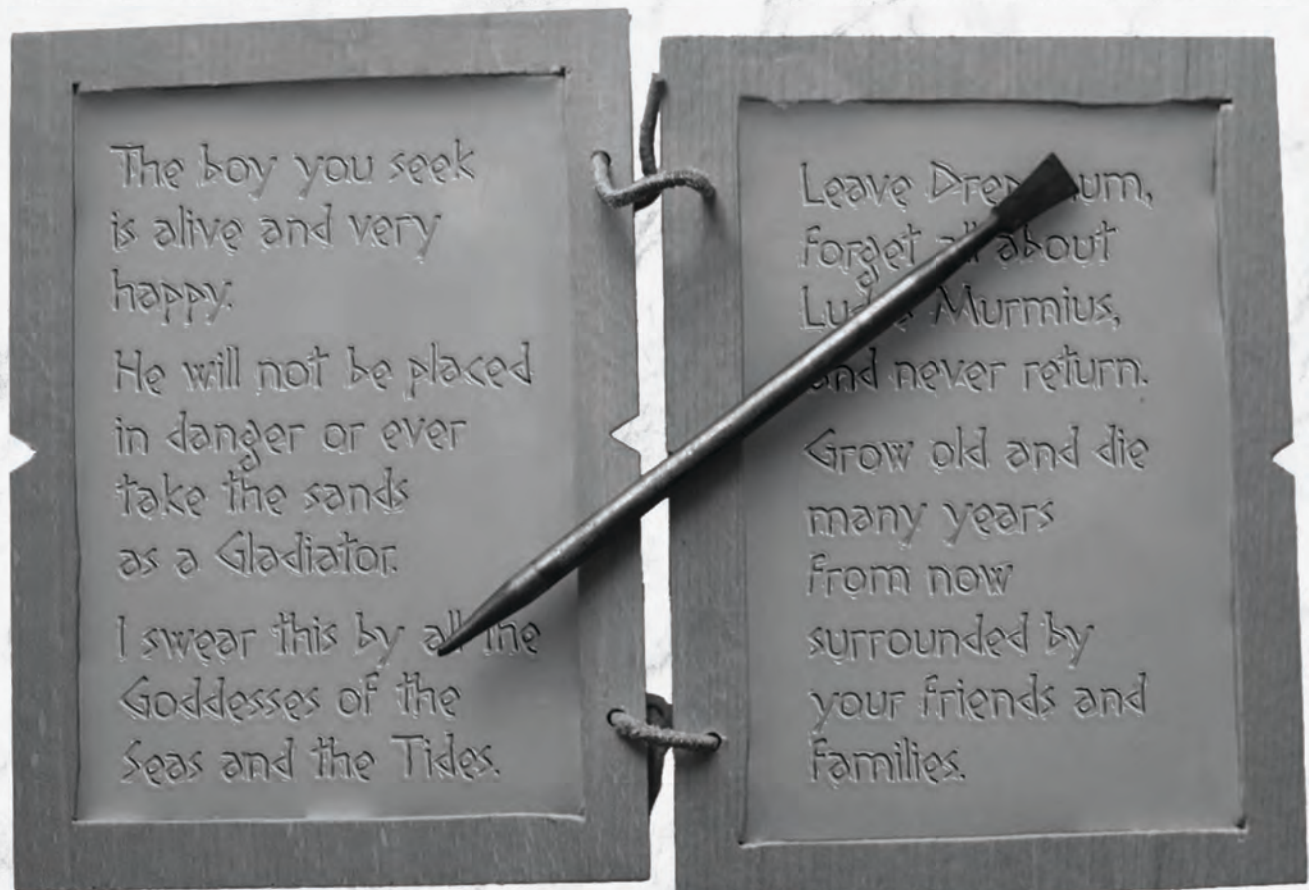 The boy you seek
is alive and very
happy.
He will not be placed
in danger or ever
take the sands
as a Gladiator.
I swear this by all the
Goddesses of the
Seas and the Tides.
Leave
forget all about
Murmius,
and never return.
Grow old and die
many years
from now
surrounded by
your friends and
families.